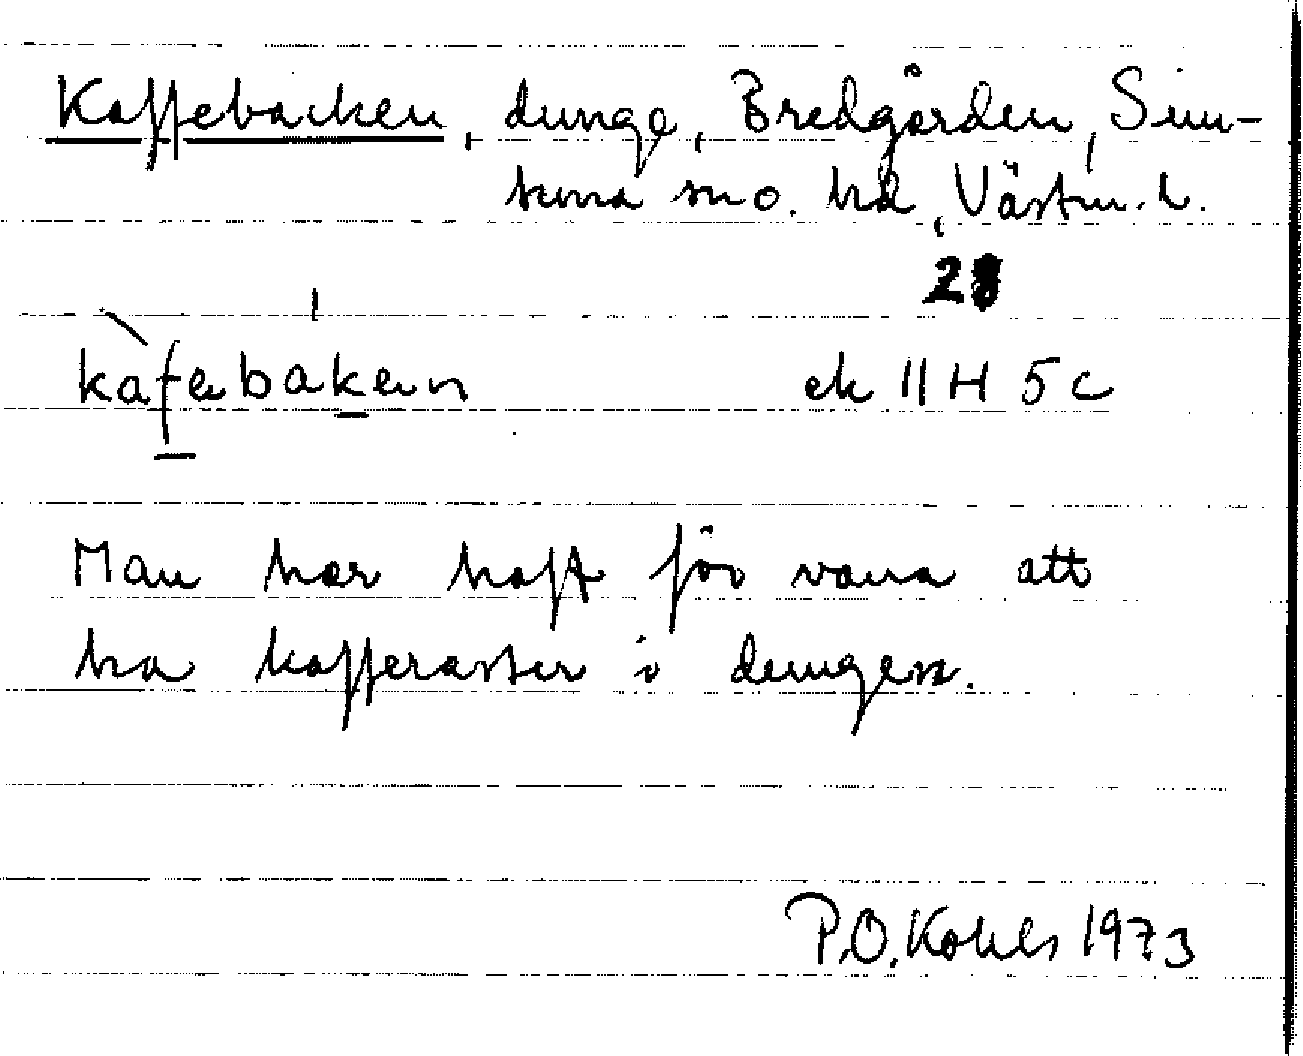 Kaffebacken, dunge, Bredgården, Sim-
tuna sn o. hd, Västm. l.
kàfebaken ek 11 H 5 c
Man har haft för vana att
ha kafferaster i dungen.
P.O. Kohls 1973